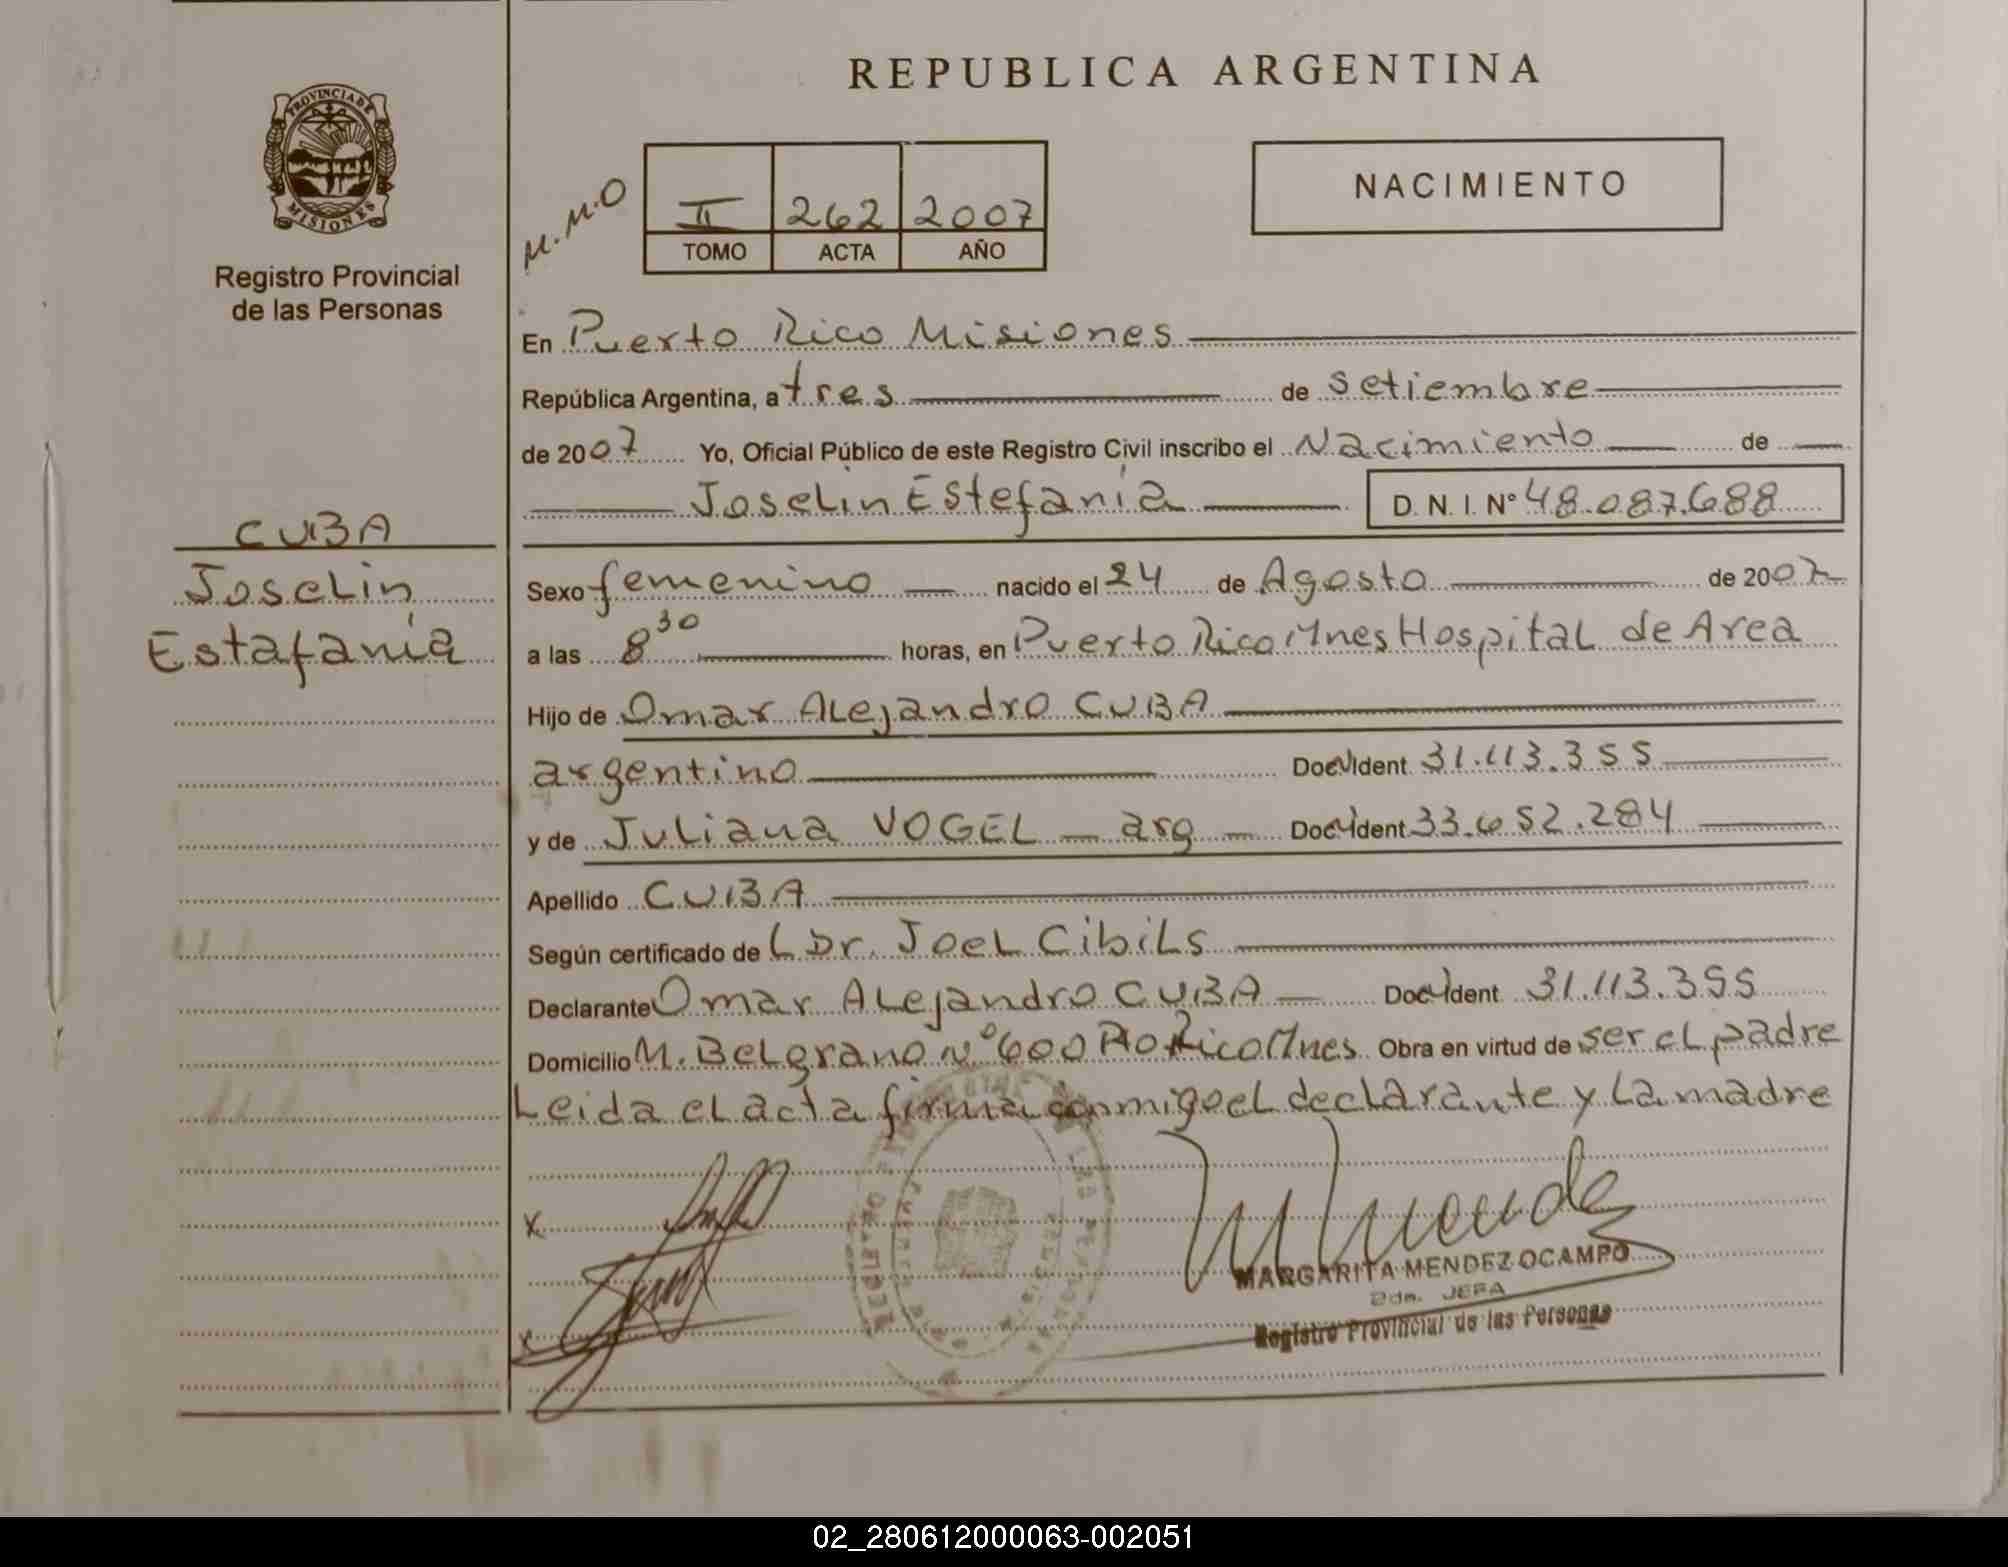 REPUBLICA ARGENTINA
PROVINCIA DE
MISIONES
Registro Provincial
de las Personas
M.M.O
II 262 2007
TOMO ACTA AÑO
NACIMIENTO
En Puerto Rico Misiones
República Argentina, a tres de setiembre
de 2007 Yo, Oficial Público de este Registro Civil inscribo el Nacimiento de
Joselin Estefanía D. N. I. N° 48.087.688
CUBA
Joselin
Estafanía
Sexo femenino nacido el 24 de Agosto de 2007
a las 8 30 horas, en Puerto Rico Mnes Hospital de Area
Hijo de Omar Alejandro CUBA
argentino Doc Ident 31.113.355
y de Juliana VOGEL - arg - Doc Ident 33.652.284
Apellido CUBA
Según certificado de L Dr. Joel Cibils
Declarante Omar Alejandro CUBA - Doc Ident 31.113.355
Domicilio M. Belgrano N° 600 Pto Rico Mnes. Obra en virtud de ser el padre
Leida el acta firma conmigo el declarante y la madre
x
x
MARGARITA MENDEZ OCAMPO
2da. JEFA
Registro Provincial de las Personas
02_280612000063-002051